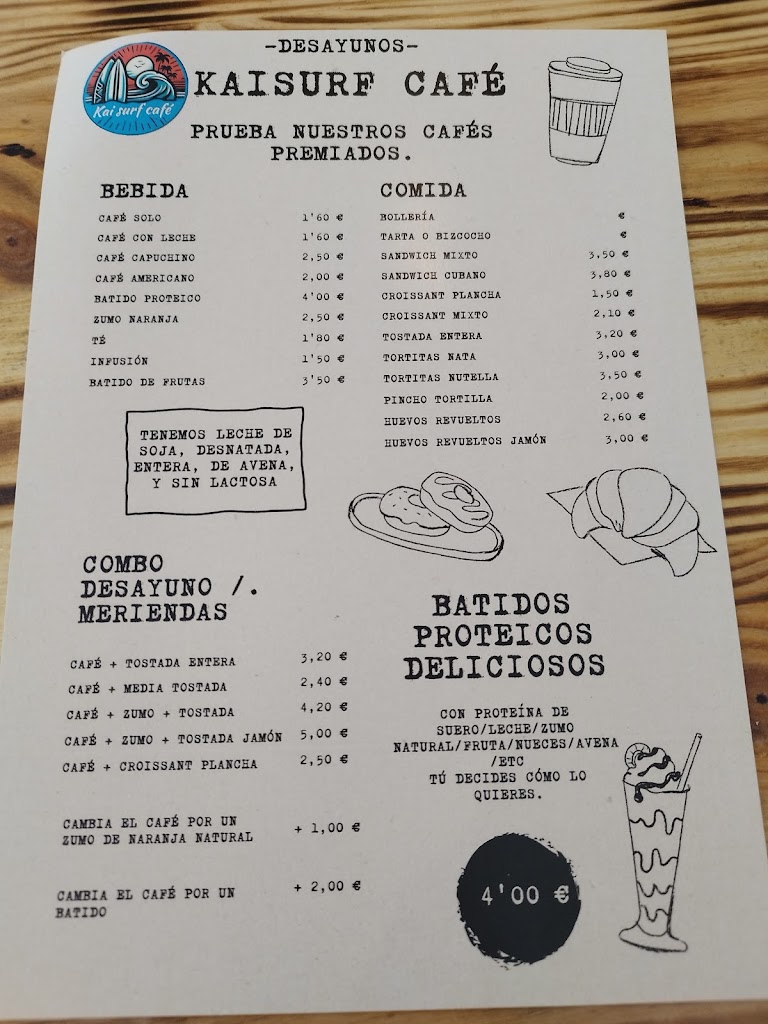 -DESAYUNOS-
Kai surf café
KAISURF CAFÉ
PRUEBA NUESTROS CAFÉS
PREMIADOS.
BEBIDA
CAFÉ SOLO 1'60 €
CAFÉ CON LECHE 1'60 €
CAFÉ CAPUCHINO 2,50 €
CAFÉ AMERICANO 2,00 €
BATIDO PROTEICO 4'00 €
ZUMO NARANJA 2,50 €
TÉ 1'80 €
INFUSIÓN 1'50 €
BATIDO DE FRUTAS 3'50 €
TENEMOS LECHE DE
SOJA, DESNATADA,
ENTERA, DE AVENA,
Y SIN LACTOSA
COMIDA
BOLLERÍA €
TARTA O BIZCOCHO €
SANDWICH MIXTO 3,50 €
SANDWICH CUBANO 3,80 €
CROISSANT PLANCHA 1,50 €
CROISSANT MIXTO 2,10 €
TOSTADA ENTERA 3,20 €
TORTITAS NATA 3,00 €
TORTITAS NUTELLA 3,50 €
PINCHO TORTILLA 2,00 €
HUEVOS REVUELTOS 2,60 €
HUEVOS REVUELTOS JAMÓN 3,00 €
COMBO
DESAYUNO /.
MERIENDAS
CAFÉ + TOSTADA ENTERA 3,20 €
CAFÉ + MEDIA TOSTADA 2,40 €
CAFÉ + ZUMO + TOSTADA 4,20 €
CAFÉ + ZUMO + TOSTADA JAMÓN 5,00 €
CAFÉ + CROISSANT PLANCHA 2,50 €
CAMBIA EL CAFÉ POR UN
ZUMO DE NARANJA NATURAL + 1,00 €
CAMBIA EL CAFÉ POR UN
BATIDO + 2,00 €
BATIDOS
PROTEICOS
DELICIOSOS
CON PROTEÍNA DE
SUERO/LECHE/ZUMO
NATURAL/FRUTA/NUECES/AVENA
/ETC
TÚ DECIDES CÓMO LO
QUIERES.
4'00 €